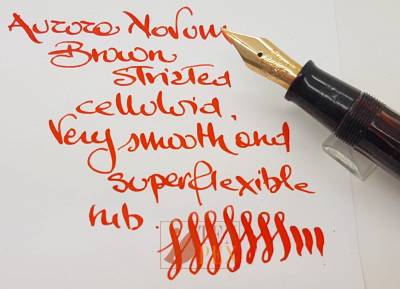 Aurora Novum
Brown
striated
celluloid.
Very smooth and
superflexible
nib.